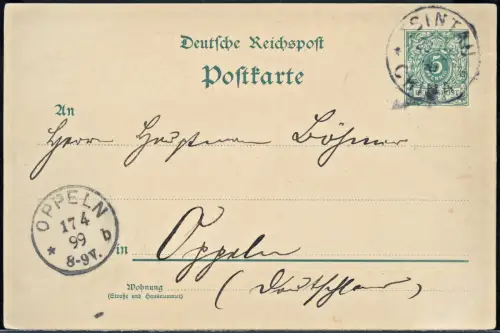 Deutsche Reichspost
Postkarte
TSINTAU
CHINA
5
An
Herrn Hauptmann Böhmer
OPPELN
17 4
99
* b
8-9V.
in Oppeln
(Deutschland)
Wohnung
(Straße und Hausnummer)